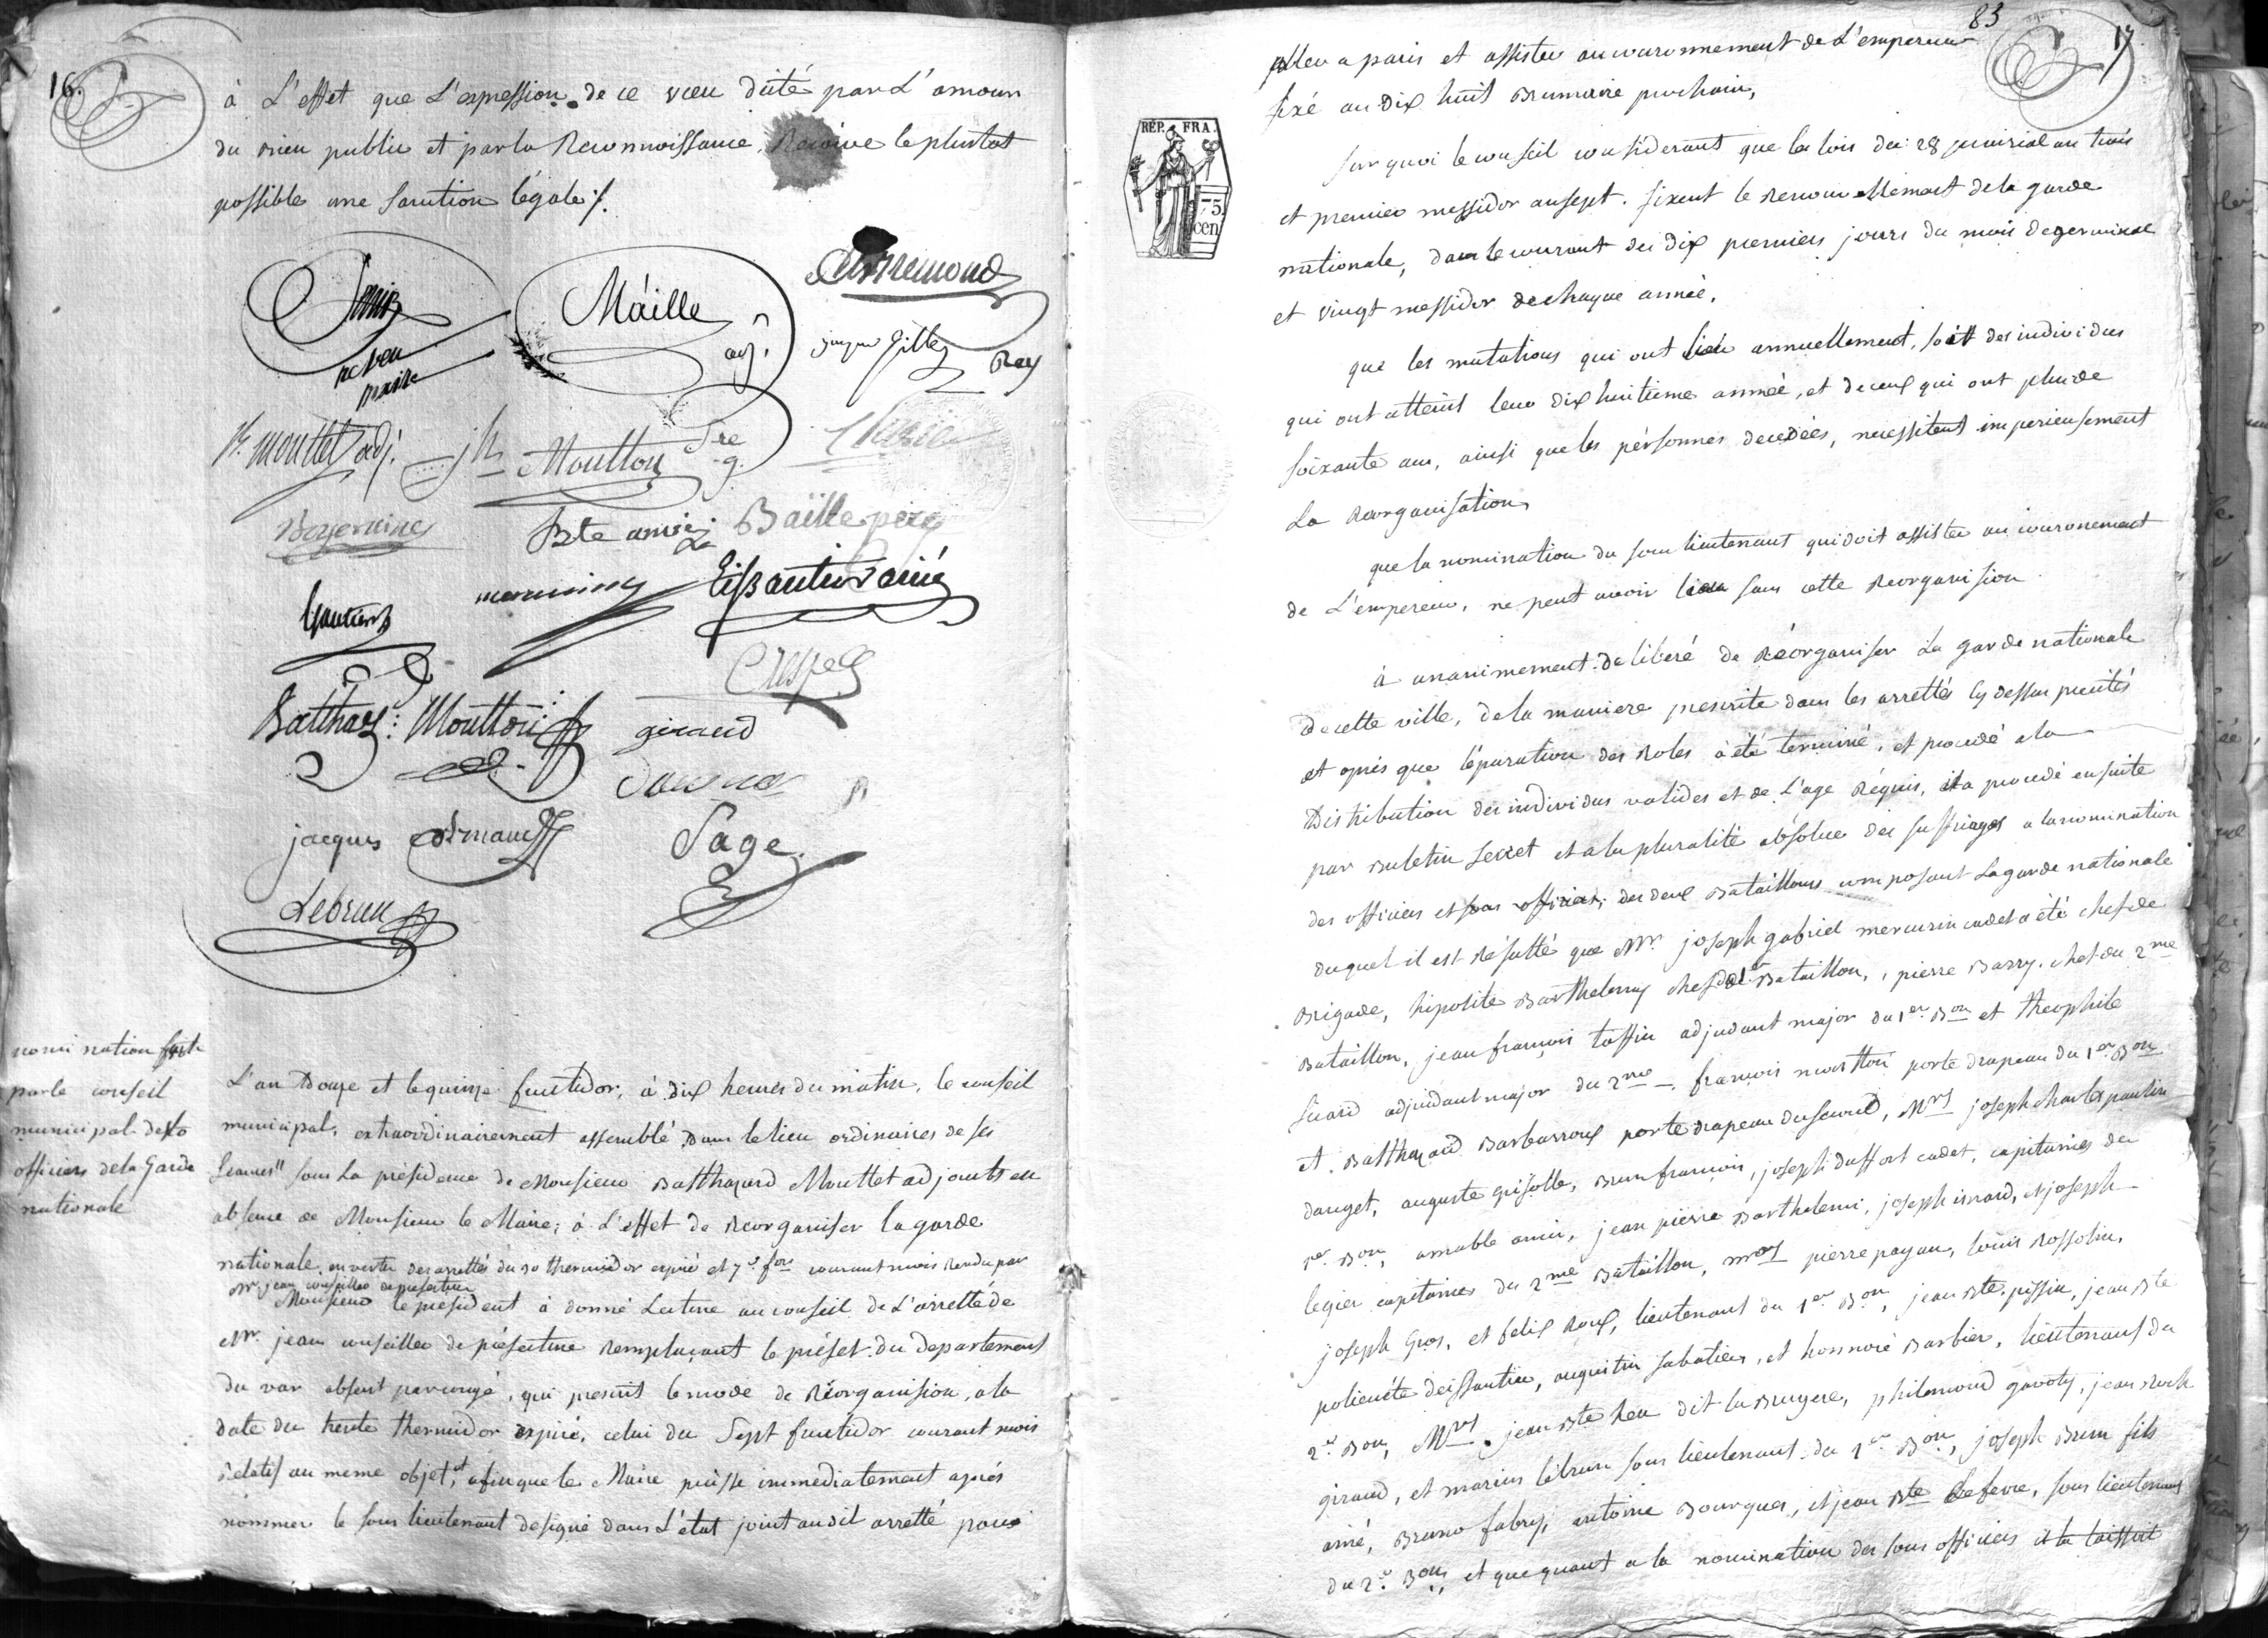 16.
à L'effet que L'expression de ce vœu dicté par L'amour
du bien public et par la Reconnoissance, Reçoive le plustot
possible une Sanction légale ∫.
Maille
adj.
jacques Gilles
Rey
Mouttet adj.
jh Moutton
Bte amic
Baille père
Eissautier ainé
Gautier
Crespe
Balthazd: Moutton
giraud
jacques
Sage
Lebrun
nomination faite
par le conseil
municipal des
officiers de la Garde
nationale
L'an Douze et le quinze fructidor, à dix heures du matin, le conseil
municipal, extraordinairement assemblé, Dans le lieu ordinaires de ses
Seances" sous La présidence de Monsieur Balthazard Mouttet adjoints en
absence de Monsieur le Maire; à L'effet de Reorganiser la garde
nationale, en vertu des arrettés du 30 thermidor expiré et 7e for courant mois Rendu par
Mr. jean conseiller de prefecture
Monsieur le president à donné Lecture au conseil de L'arretté de
Mr. jean conseiller de préfecture Remplaçant le préfet du departement
du var absent par congé, qui prescrit le mode de Réorganision, a la
date du trente thermidor expiré, celui du Sept fructidor courant mois
rélatif au meme objet, et afin que le Maire puisse immediatement après
nommer le sous lieutenant designé dans L'état joint audit arretté pour
83
17
aller a paris et assister au couronnement de L'empereur
fixé au dix huit Brumaire prochain,
RÉP. FRA.
75
cen
Sur quoi le conseil considerant que les lois du 28 prairial an trois
et premier messidor an sept. fixent le renouvellement de la garde
nationale, dans le courant des dix premiers jours du mois de germinal
et vingt messidor de chaque année,
que les mutations qui ont lieu annuellement, soit des individus
qui ont atteint leur dix huitieme année, et de ceux qui ont plus de
soixante ans, ainsi que les pérsonnes decedées, necessitent imperieusement
La Reorganisation,
que la nomination du sous lieutenant qui doit assister au couronement
de L'empereur, ne peut avoir lieu sans cette Reorganision
à unanimement deliberé de Réorganiser La garde nationale
De cette ville, de la maniere prescrite dans les arrettés cy dessus précités
et après que l'épuration des Roles à été terminé, et procedé a la
Distribution des individus valides et de L'age Réquis, il a procedé ensuite
par Buletin secret et a la pluralité absolue des suffrages a la nomination
des officiers et sous officiers, des deux Bataillons composant La garde nationale
duquel il est résulté que Mr. joseph gabriel mercurin cadet a été chef de
Brigade, hipolite Barthelemy chef du 1er Bataillon, pierre Barry, chef du 2me
Bataillon, jean françois toffin adjudant major du 1er Bon et theophile
Suard adjudant major du 2me, françois moutton porte drapeau du 1er Bon
et Balthazard Barbarroux porte drapeau du second, Mrs joseph charles paulin
dauget, auguste grisolle, Brun françois, joseph duffort cadet, capitaines du
1er Bon, amable amic, jean pierre Barthelemi, joseph isnard, et joseph
legier capitaines du 2me Bataillon, mrs pierre payan, louis Rossolin,
joseph Gros, et felix Roux, lieutenant du 1er Bon, jean Bte pissin, jean Bte
policucte deissautier, augustin sabatier, et honnoré Barbier, lieutenans du
2e Bon, Mrs jean Bte heu dit la Bruyere, philemond gavoty, jean Roch
giraud, et marius lebrun sous lieutenant du 1er Bon, joseph Brun fils
ainé, Bruno fabry, antoine Bourgues, et jean Bte Lefevre, sous lieutenans
du 2e Bon, et que quant a la nomination des sous officiers il la laissoit